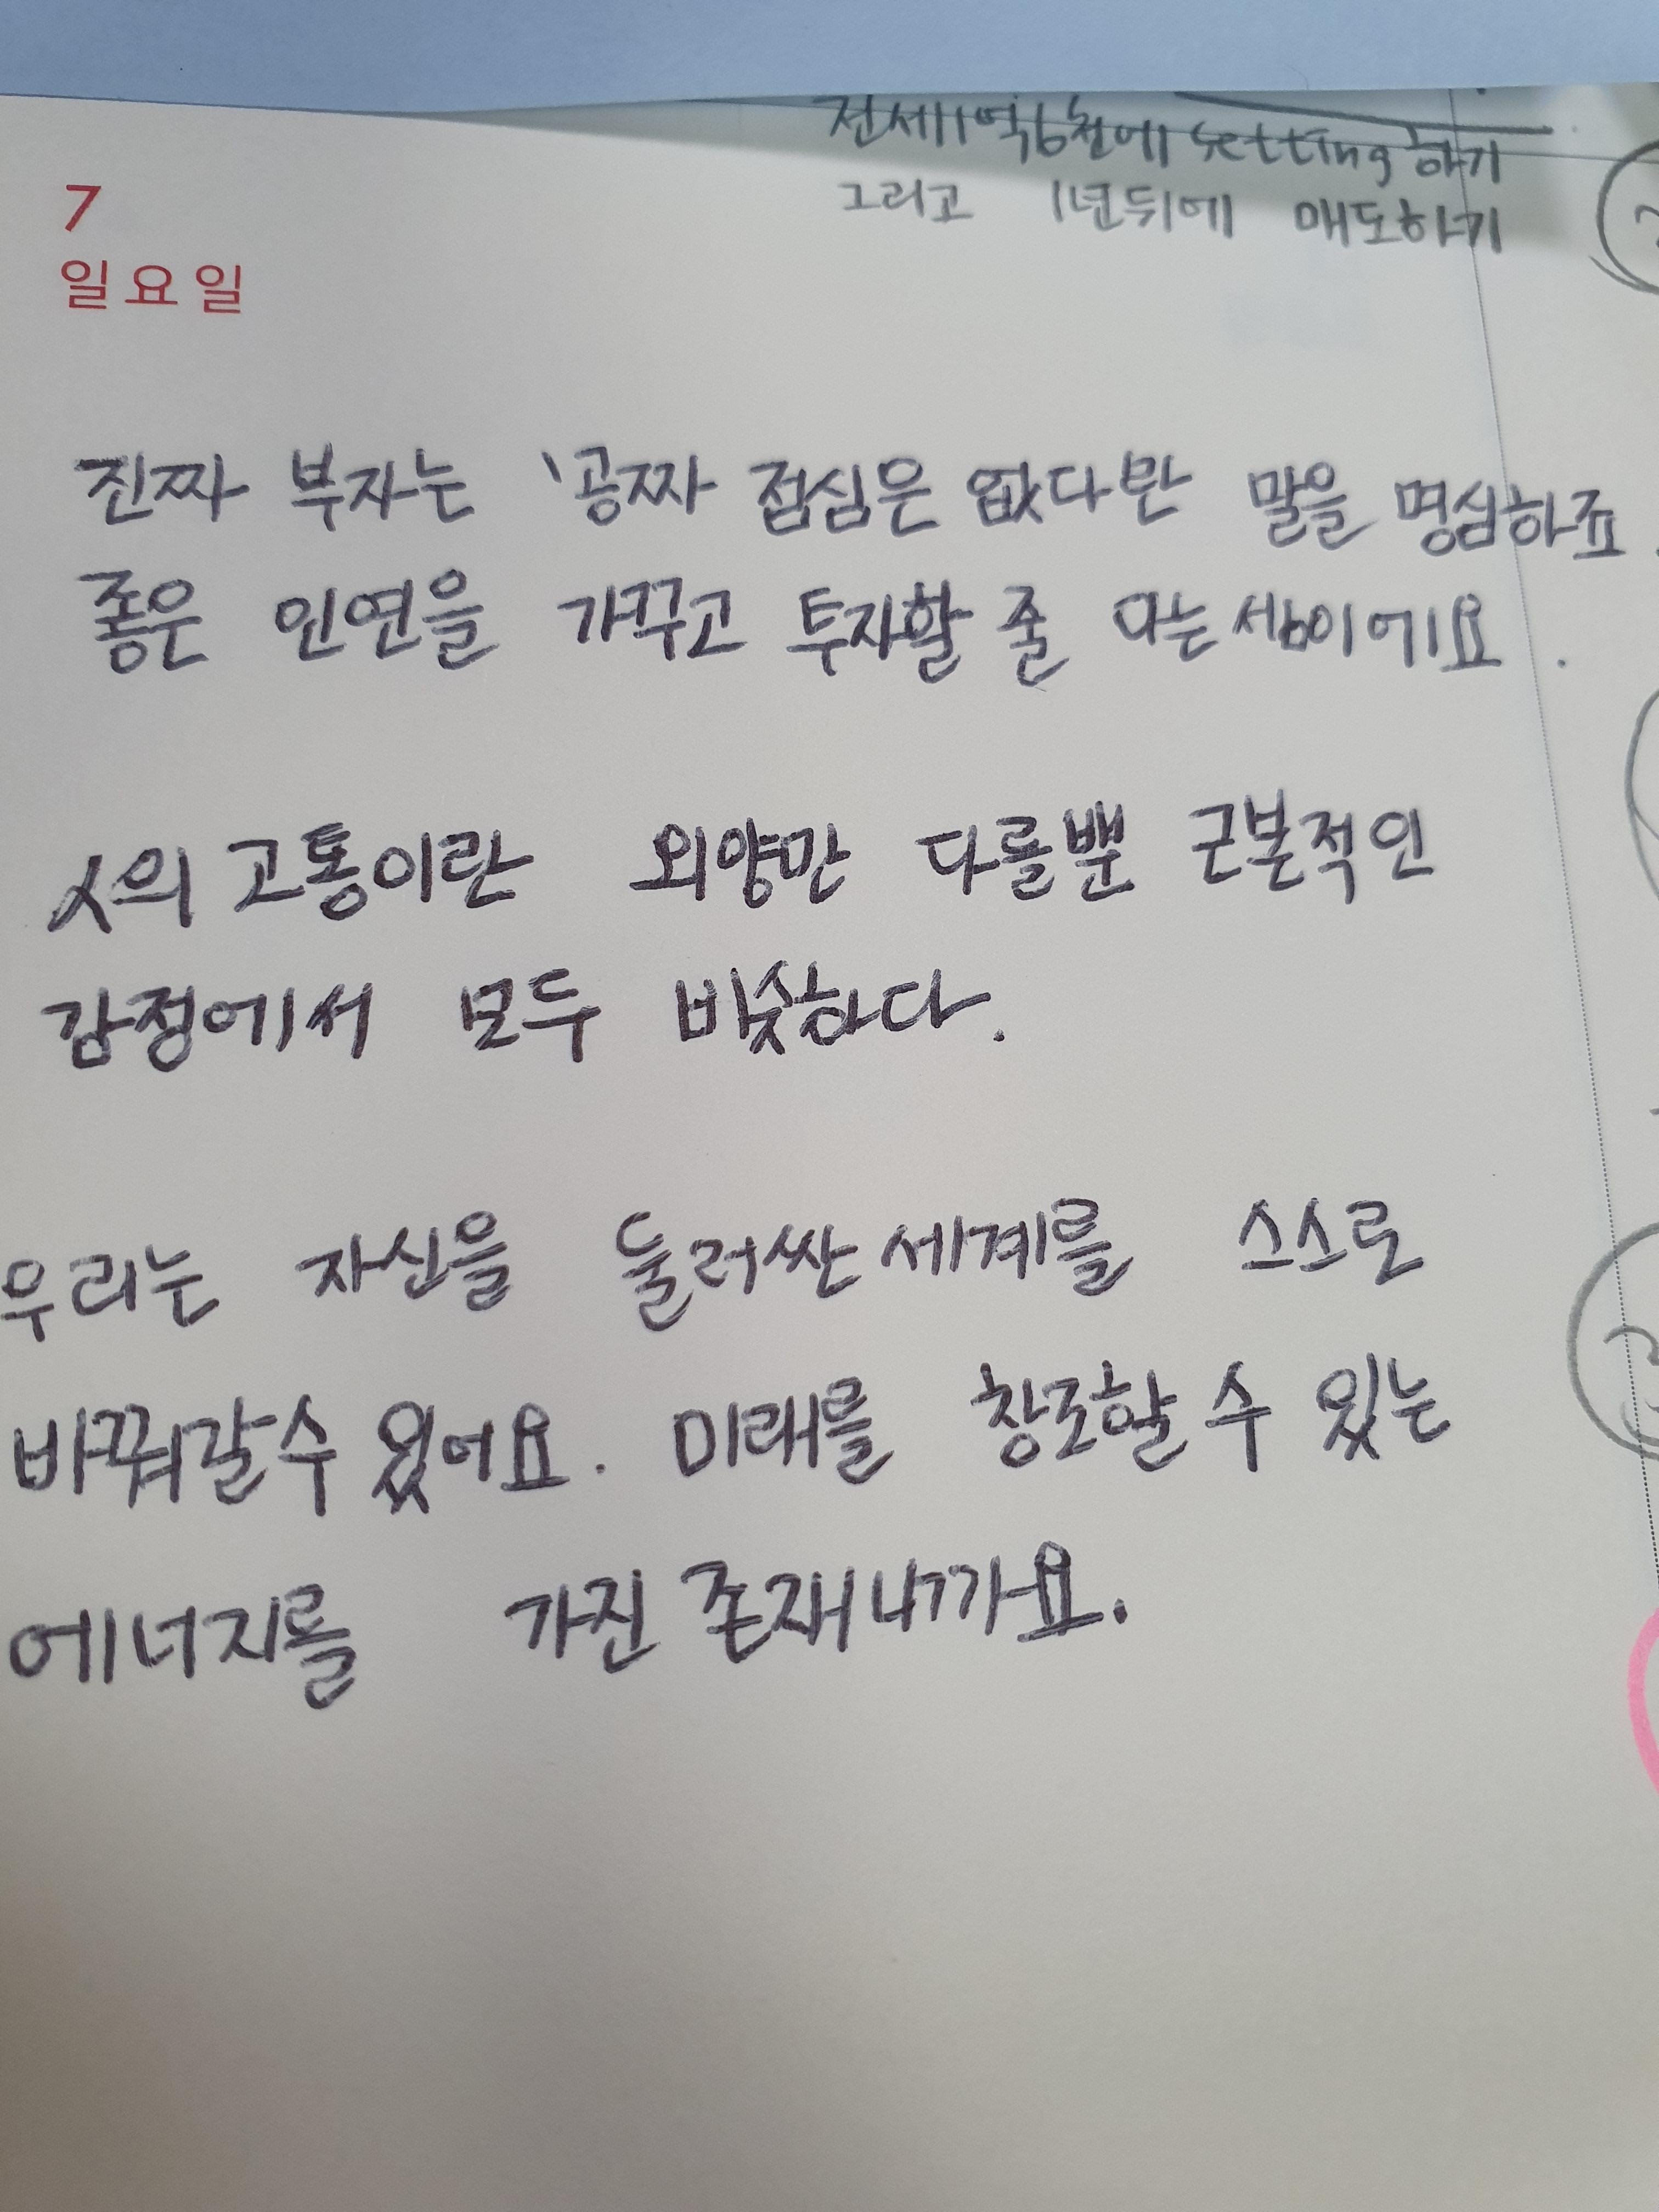 전세1억6천에 setting하기
그리고 1년뒤에 매도하기
7
일요일
진짜 부자는 '공짜 점심은 없다'란 말을 명심하죠.
좋은 인연을 가꾸고 투자할 줄 아는 셈이에요.
人의 고통이란 외양만 다를뿐 근본적인
감정에서 모두 비슷하다.
우리는 자신을 둘러싼 세계를 스스로
바꿔갈수 있어요. 미래를 창조할 수 있는
에너지를 가진 존재니까요.